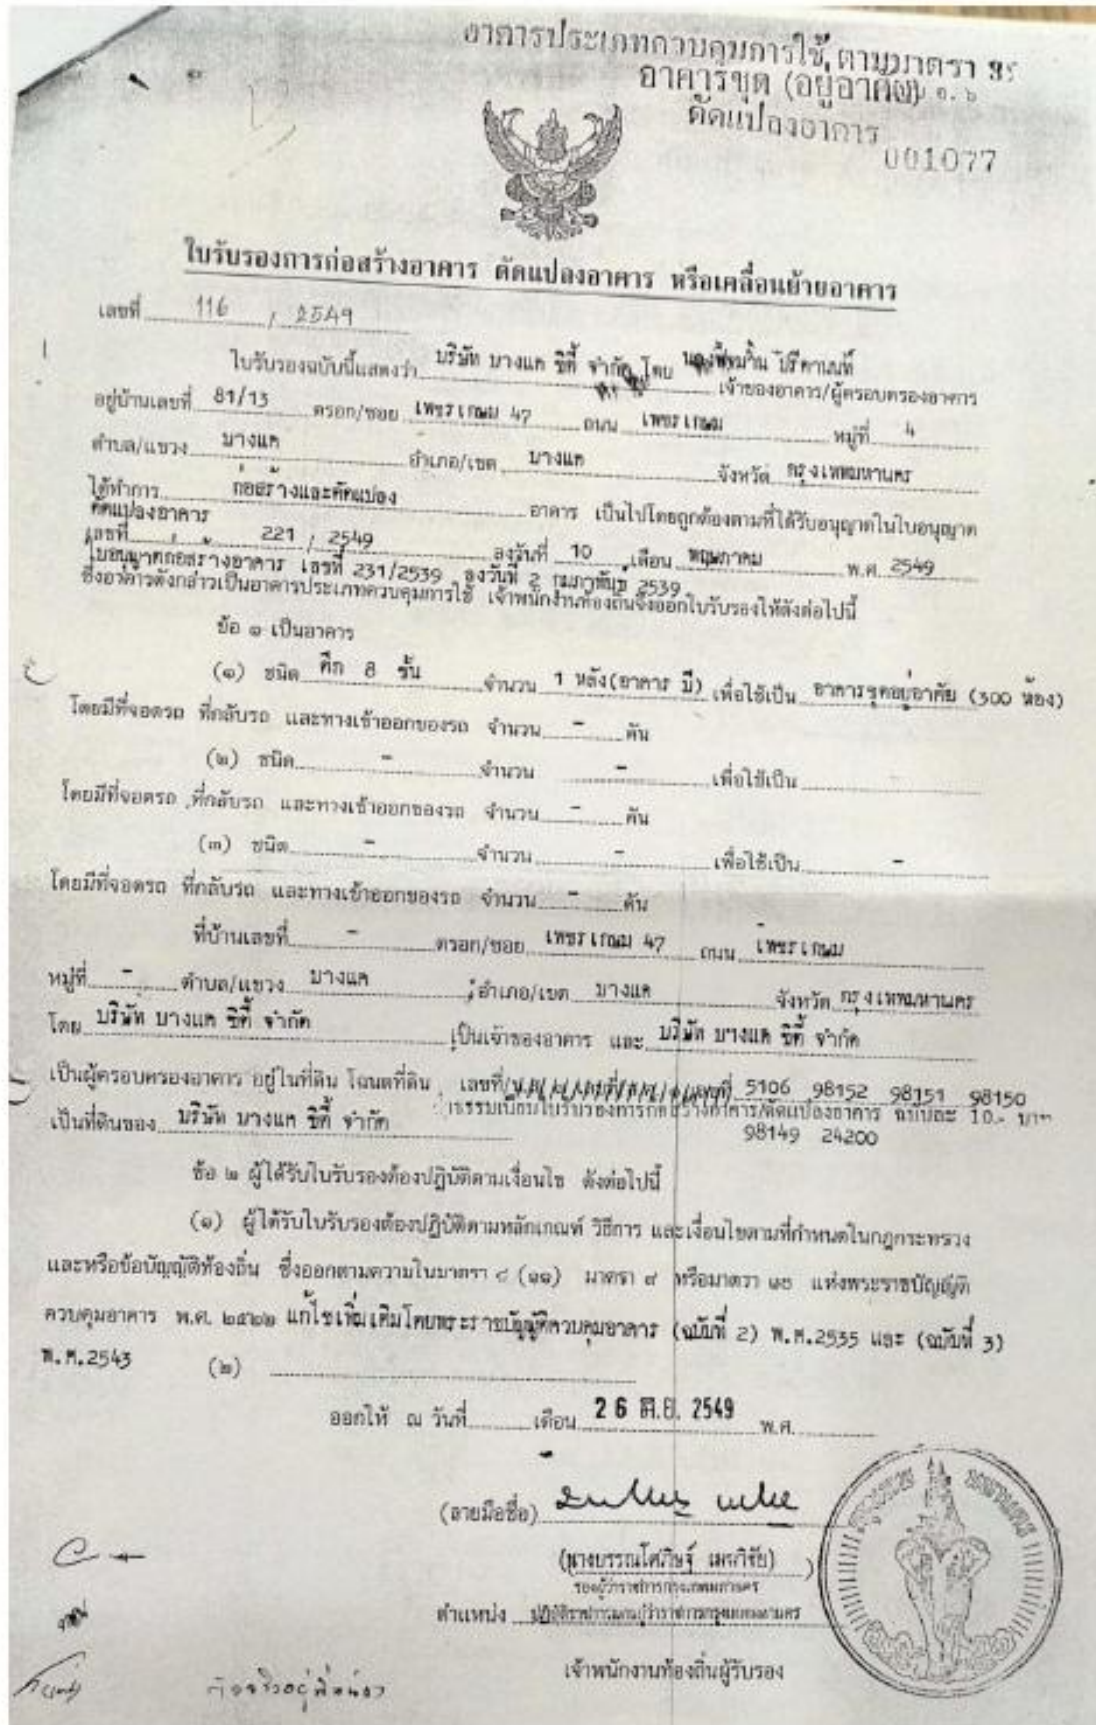 อาคารประเภทควบคุมการใช้ ตามมาตรา
อาคารชุด (อยู่อาศัย)
ดัดแปลงอาคาร
001077
ใบรับรองการก่อสร้างอาคาร ดัดแปลงอาคาร หรือเคลื่อนย้ายอาคาร
เลขที่ 116 / 2549
ใบรับรองฉบับนี้แสดงว่า บริษัท บางแค ซิตี้ จำกัด โดย ปรีดานนท์
เจ้าของอาคาร/ผู้ครอบครองอาคาร
อยู่บ้านเลขที่ 81/13 ตรอก/ซอย เพชรเกษม 47 ถนน เพชรเกษม หมู่ที่ 4
ตำบล/แขวง บางแค อำเภอ/เขต บางแค จังหวัด กรุงเทพมหานคร
ได้ทำการ ก่อสร้างและดัดแปลง อาคาร เป็นไปโดยถูกต้องตามที่ได้รับอนุญาตในใบอนุญาต
ดัดแปลงอาคาร
เลขที่ 221 / 2549 ลงวันที่ 10 เดือน พฤษภาคม พ.ศ. 2549
ใบอนุญาตก่อสร้างอาคาร เลขที่ 231/2539 ลงวันที่ 2 กุมภาพันธ์ 2539
ซึ่งอาคารดังกล่าวเป็นอาคารประเภทควบคุมการใช้ เจ้าพนักงานท้องถิ่นจึงออกใบรับรองให้ดังต่อไปนี้
ข้อ ๑ เป็นอาคาร
(๑) ชนิด ตึก 8 ชั้น จำนวน 1 หลัง(อาคาร บี) เพื่อใช้เป็น อาคารชุดอยู่อาศัย (300 ห้อง)
โดยมีที่จอดรถ ที่กลับรถ และทางเข้าออกของรถ จำนวน - คัน
(๒) ชนิด - จำนวน - เพื่อใช้เป็น
โดยมีที่จอดรถ ที่กลับรถ และทางเข้าออกของรถ จำนวน - คัน
(๓) ชนิด - จำนวน - เพื่อใช้เป็น -
โดยมีที่จอดรถ ที่กลับรถ และทางเข้าออกของรถ จำนวน - คัน
ที่บ้านเลขที่ - ตรอก/ซอย เพชรเกษม 47 ถนน เพชรเกษม
หมู่ที่ - ตำบล/แขวง บางแค อำเภอ/เขต บางแค จังหวัด กรุงเทพมหานคร
โดย บริษัท บางแค ซิตี้ จำกัด เป็นเจ้าของอาคาร และ บริษัท บางแค ซิตี้ จำกัด
เป็นผู้ครอบครองอาคาร อยู่ในที่ดิน โฉนดที่ดิน เลขที่ 5106 98152 98151 98150
ธรรมเนียมใบรับรองการก่อสร้างอาคาร/ดัดแปลงอาคาร ฉบับละ 10.- บาท
เป็นที่ดินของ บริษัท บางแค ซิตี้ จำกัด 98149 24200
ข้อ ๒ ผู้ได้รับใบรับรองต้องปฏิบัติตามเงื่อนไข ดังต่อไปนี้
(๑) ผู้ได้รับใบรับรองต้องปฏิบัติตามหลักเกณฑ์ วิธีการ และเงื่อนไขตามที่กำหนดในกฎกระทรวง
และหรือข้อบัญญัติท้องถิ่น ซึ่งออกตามความในมาตรา ๘ (๑๑) มาตรา ๙ หรือมาตรา ๑๐ แห่งพระราชบัญญัติ
ควบคุมอาคาร พ.ศ. ๒๕๒๒ แก้ไขเพิ่มเติมโดยพระราชบัญญัติควบคุมอาคาร (ฉบับที่ 2) พ.ศ.2535 และ (ฉบับที่ 3)
พ.ศ.2543 (๒)
ออกให้ ณ วันที่ เดือน 26 มิ.ย. 2549 พ.ศ.
(ลายมือชื่อ)
รองผู้ว่าราชการกรุงเทพมหานคร
ตำแหน่ง ปฏิบัติราชการแทนผู้ว่าราชการกรุงเทพมหานคร
เจ้าพนักงานท้องถิ่นผู้รับรอง